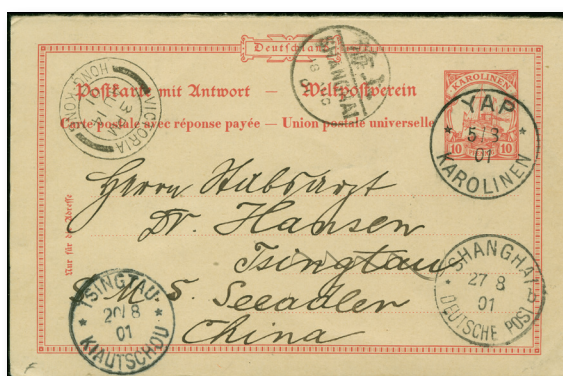 Deutschland
Postkarte mit Antwort — Weltpostverein
Carte postale avec réponse payée — Union postale universelle
KAROLINEN
10 10
YAP
5/8
01
KAROLINEN
SHANGHAI
VICTORIA
HONG-KONG
Nur für die Adresse
Herrn Stabsarzt
Dr. Hansen
Tsingtau
S. M. S. Seeadler
China
TSINGTAU
20/8
01
KIAUTSCHOU
SHANGHAI
27 8
01
DEUTSCHE POST